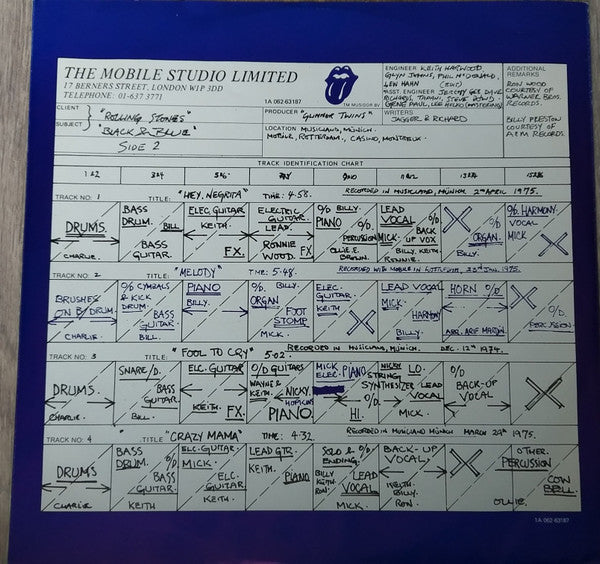 THE MOBILE STUDIO LIMITED
17 BERNERS STREET, LONDON W1P 3DD
TELEPHONE: 01-637 3771
1A 062-63187
CLIENT "ROLLING STONES"
SUBJECT "BLACK & BLUE"
SIDE 2
PRODUCER "GLIMMER TWINS"
LOCATION MUSICLAND, MÜNICH.
MOBILE, ROTTERDAM, CASINO, MONTREUX.
ENGINEER KEITH HARWOOD,
GLYN JOHNS, PHIL McDONALD,
LEW HAHN
ASST. ENGINEER JEREMY GEE, DAVE
WRITERS
JAGGER & RICHARD
ADDITIONAL
REMARKS
RON WOOD
COURTESY OF
WARNER BROS.
RECORDS.
BILLY PRESTON
COURTESY OF
A&M RECORDS.
TRACK IDENTIFICATION CHART
1&2 3&4 5&6 7&8 9&10 11&12 13&14 15&16
TRACK NO: 1 TITLE: "HEY, NEGRITA" TIME: 4.58. RECORDED IN MUSICLAND, MÜNICH 2ND APRIL 1975.
DRUMS.
CHARLIE.
BASS
DRUM. BILL
BASS
GUITAR.
ELEC. GUITAR
KEITH.
FX.
ELECTRIC
GUITAR
LEAD.
RONNIE
WOOD. FX
O/D. BILLY.
PIANO
O/D.
PERCUSSION
OLLIE E.
BROWN.
LEAD
VOCAL O/D.
MICK. BACK
UP VOX
BILLY. KEITH.
RONNIE.
O/D.
ORGAN.
BILLY.
O/D. HARMONY.
VOCAL
MICK
TRACK NO: 2 TITLE: "MELODY" TIME: 5.48. RECORDED WITH MOBILE IN ROTTERDAM, 23RD JAN. 1975.
BRUSHES
ON B/DRUM
CHARLIE.
O/D CYMBALS
& KICK
DRUM.
BASS
GUITAR.
BILL
PIANO
BILLY.
O/D. BILLY.
ORGAN
FOOT
STOMP
MICK.
ELEC.
GUITAR
KEITH
LEAD VOCAL
MICK.
HARMONY
BILLY.
HORN O/D
ARR. ARIF MARDIN
O/D
PERCUSSION.
TRACK NO: 3 TITLE: "FOOL TO CRY" 5.02. RECORDED IN MUSICLAND, MÜNICH. DEC. 12TH 1974.
DRUMS.
CHARLIE.
SNARE/D.
BASS
GUITAR.
BILL.
ELC. GUITAR
KEITH. FX.
O/D GUITARS
WAYNE &
KEITH.
NICKY
HOPKINS
PIANO
MICK
ELEC. PIANO
O/D.
HI.
NICKY LO.
STRING
SYNTHESIZER
LEAD
VOCAL
MICK.
O/D.
BACK-UP
VOCAL
TRACK NO: 4 TITLE "CRAZY MAMA" TIME: 4.32. RECORDED IN MUSICLAND MÜNICH MARCH 29TH 1975.
DRUMS
CHARLIE
BASS
DRUM. O/D.
BASS
GUITAR.
KEITH
ELC. GUITAR
MICK.
ELC.
GUITAR
KEITH.
LEAD GTR.
KEITH.
PIANO
SOLO &
ENDING.
BILLY
KEITH.
RON.
LEAD
VOCAL
MICK.
BACK-UP
VOCAL
KEITH.
BILLY.
RON.
OTHER.
PERCUSSION
OLLIE.
COW
BELL.
1A 062-63187